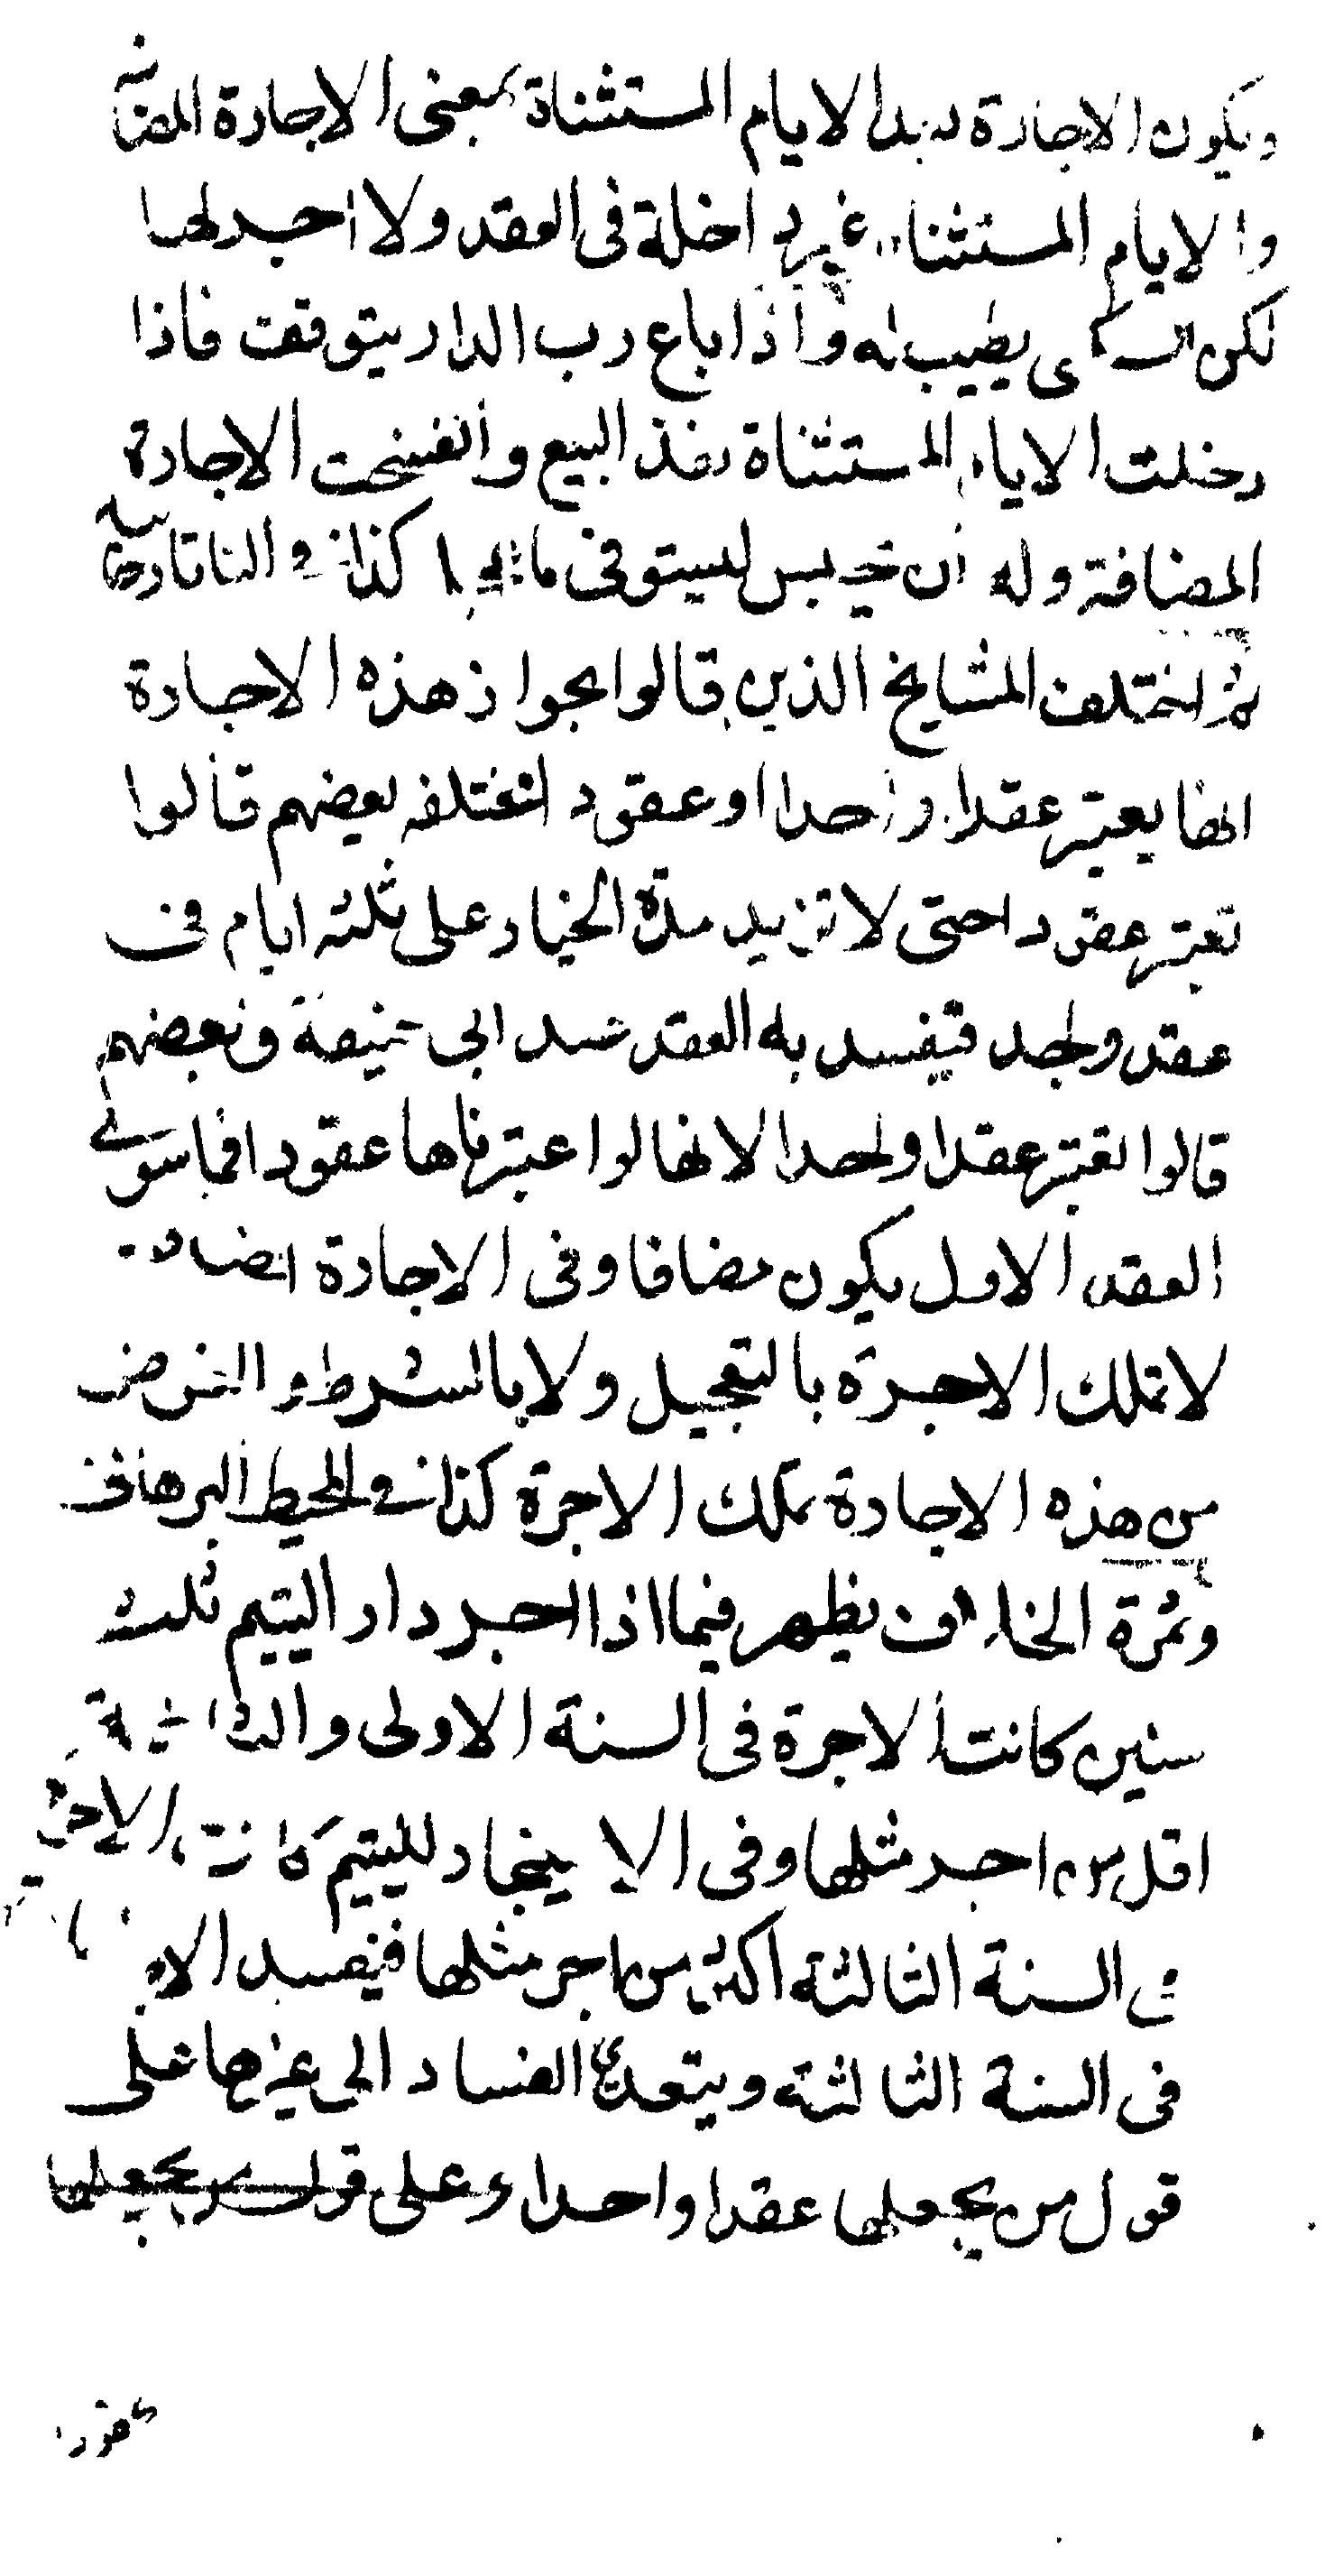 ويكون الاجارة بعد الايام المستثناة بمعنى الاجارة المضافة
والايام المستثناة غير داخلة في العقد ولا اجر لها
لكن السكنى يطيب له واذا باع رب الدار يتوقف فاذا
دخلت الايام المستثناة نفذ البيع وانفسخت الاجارة
المضافة وله ان يحبس ليستوفى ماله كذا في التاتارخانيه
ثم اختلف المشايخ الذين قالوا بجواز هذه الاجارة
انها يعتبر عقدا واحدا او عقود اختلفه بعضهم قالوا
تعتبر عقودا حتى لا تزيد مدة الخيار على ثلثه ايام في
عقد واحد فيفسد به العقد عند ابى حنيفة وبعضهم
قالوا تعتبر عقدا واحدا لانها لو اعتبرناها عقودا فما سوى
العقد الاول يكون مضافا وفى الاجارة المضافة
لا تملك الاجرة بالتعجيل ولا بالشرط والغرض
من هذه الاجارة تملك الاجرة كذا في المحيط البرهانى
وثمرة الخلاف يظهر فيما اذا اجر دار اليتيم ثلث
سنين كانت الاجرة فى السنة الاولى والثانية
اقل من اجر مثلها وفى الاستيجار لليتيم كانت الاجرة
في السنة الثالثة اكثر من اجر مثلها فيفسد
فى السنة الثالثة ويتعدى الفساد الى غيرها على
قول من يجعلها عقدا واحدا وعلى قول من يجعلها
عقودا